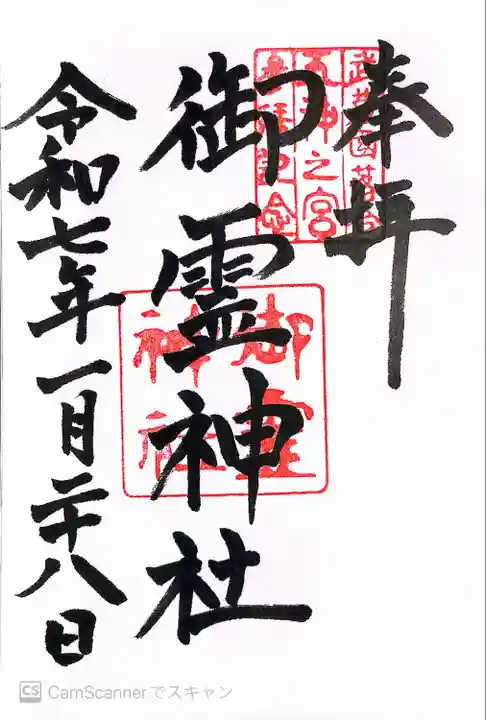 奉拝
天神之宮
御霊神社
御霊
神社
令和七年一月二十八日
CS CamScannerでスキャン